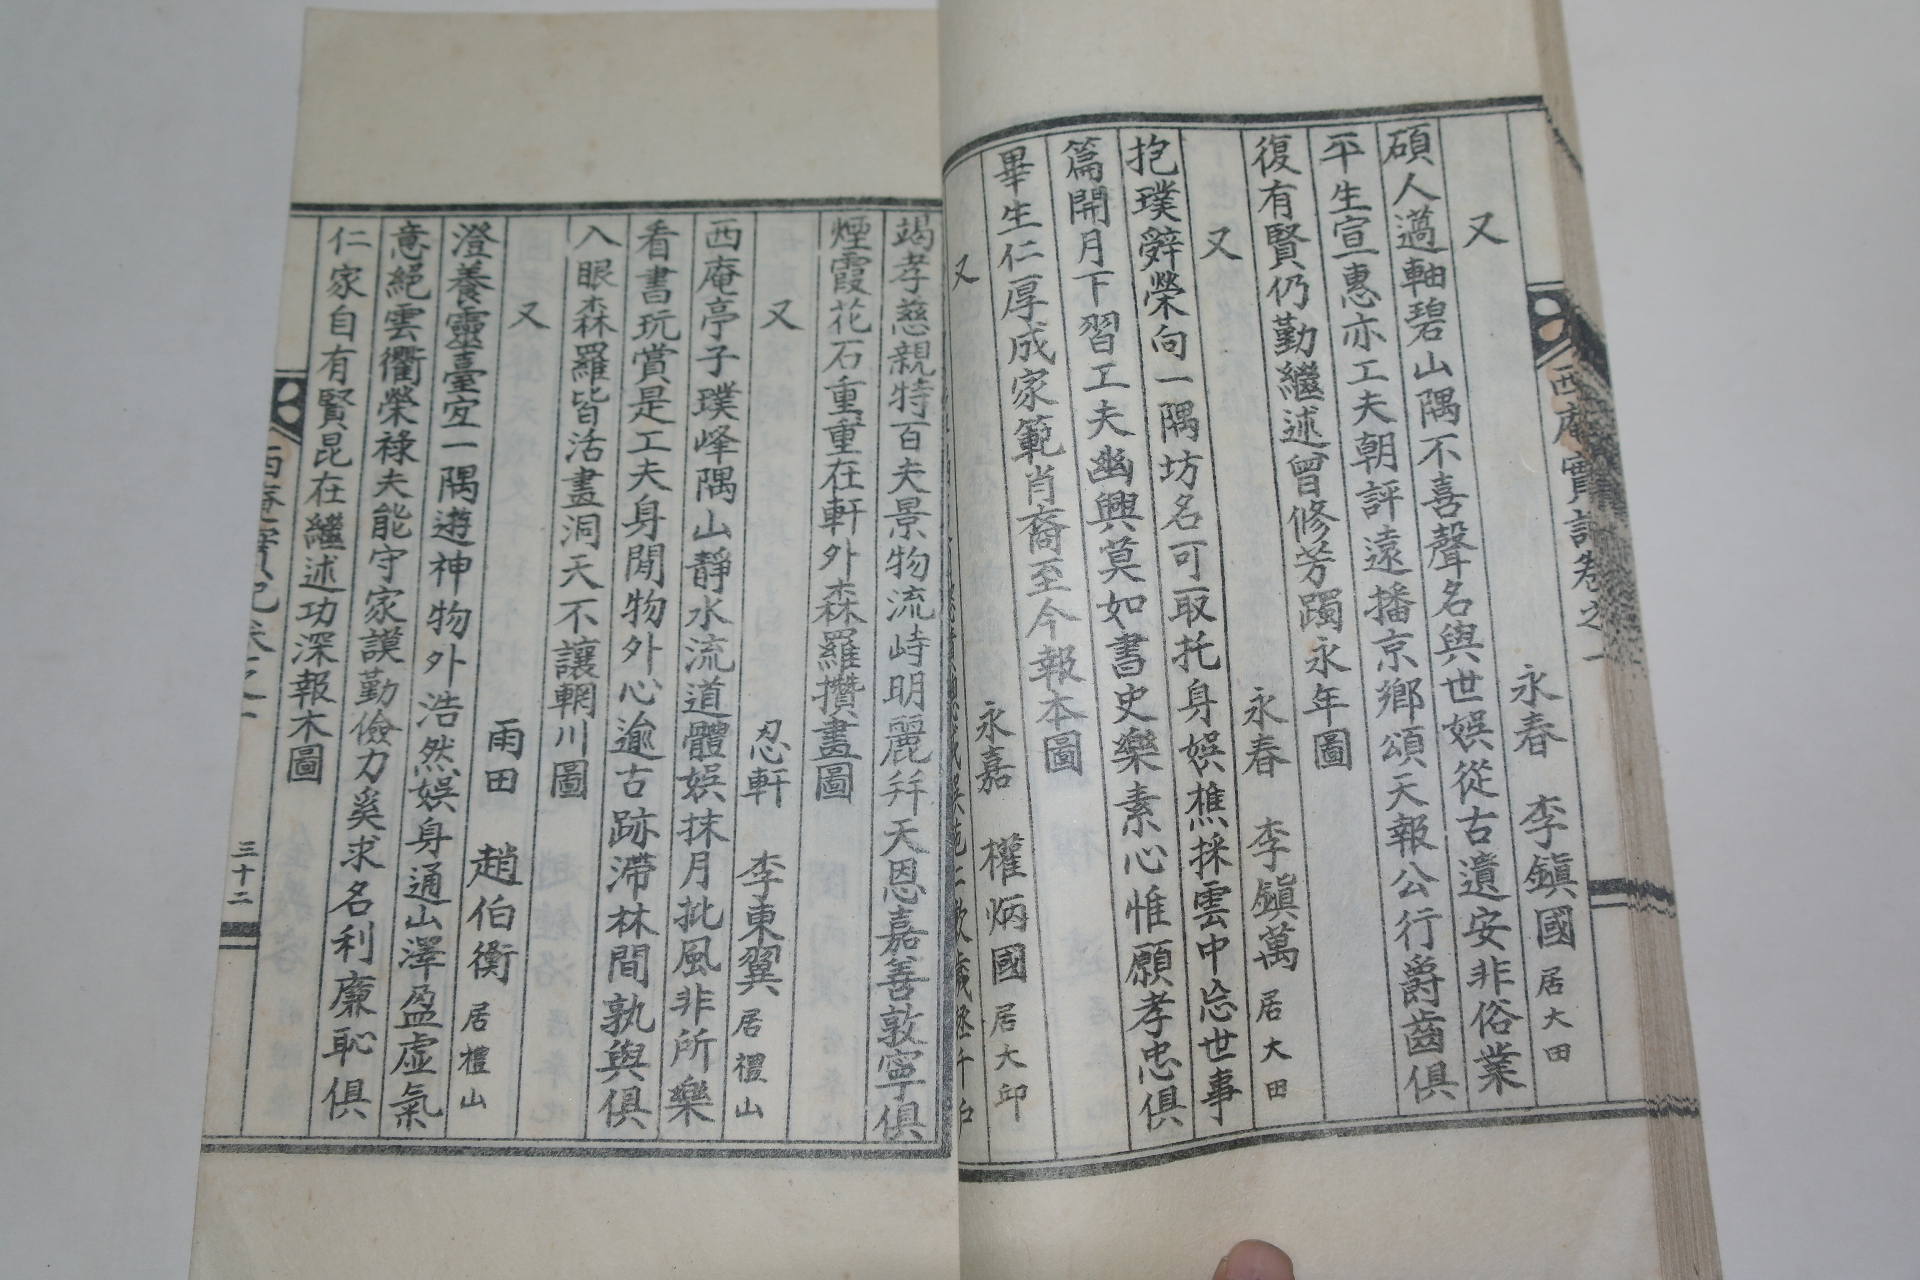 西庵實記卷之一
又 永春 李鎭國 居大田
碩人薖軸碧山隅不喜聲名與世娛從古遺安非俗業
平生宣惠亦工夫朝評遠播京鄉頌天報公行爵齒俱
復有賢仍勤繼述曾修芳躅永年圖
又 永春 李鎭萬 居大田
抱璞辭榮向一隅坊名可取托身娛樵採雲中忘世事
篇開月下習工夫幽興莫如書史樂素心惟願孝忠俱
畢生仁厚成家範肖裔至今報本圖
又 永嘉 權炳國 居大邱
竭孝慈親特百夫景物流峙明麗幷天恩嘉善敦寧俱
煙霞花石重重在軒外森羅攢畫圖
又 忍軒 李東翼 居禮山
西庵亭子璞峰隅山靜水流道體娛抹月批風非所樂
看書玩賞是工夫身閒物外心逾古跡滯林間孰與俱
入眼森羅皆活畫洞天不讓輞川圖
又 雨田 趙伯衡 居禮山
澄養靈臺宜一隅遊神物外浩然娛身通山澤盈虛氣
意絕雲衢榮祿夫能守家謨勤儉力奚求名利廉恥俱
仁家自有賢昆在繼述功深報本圖
西庵實記卷之一 三十二